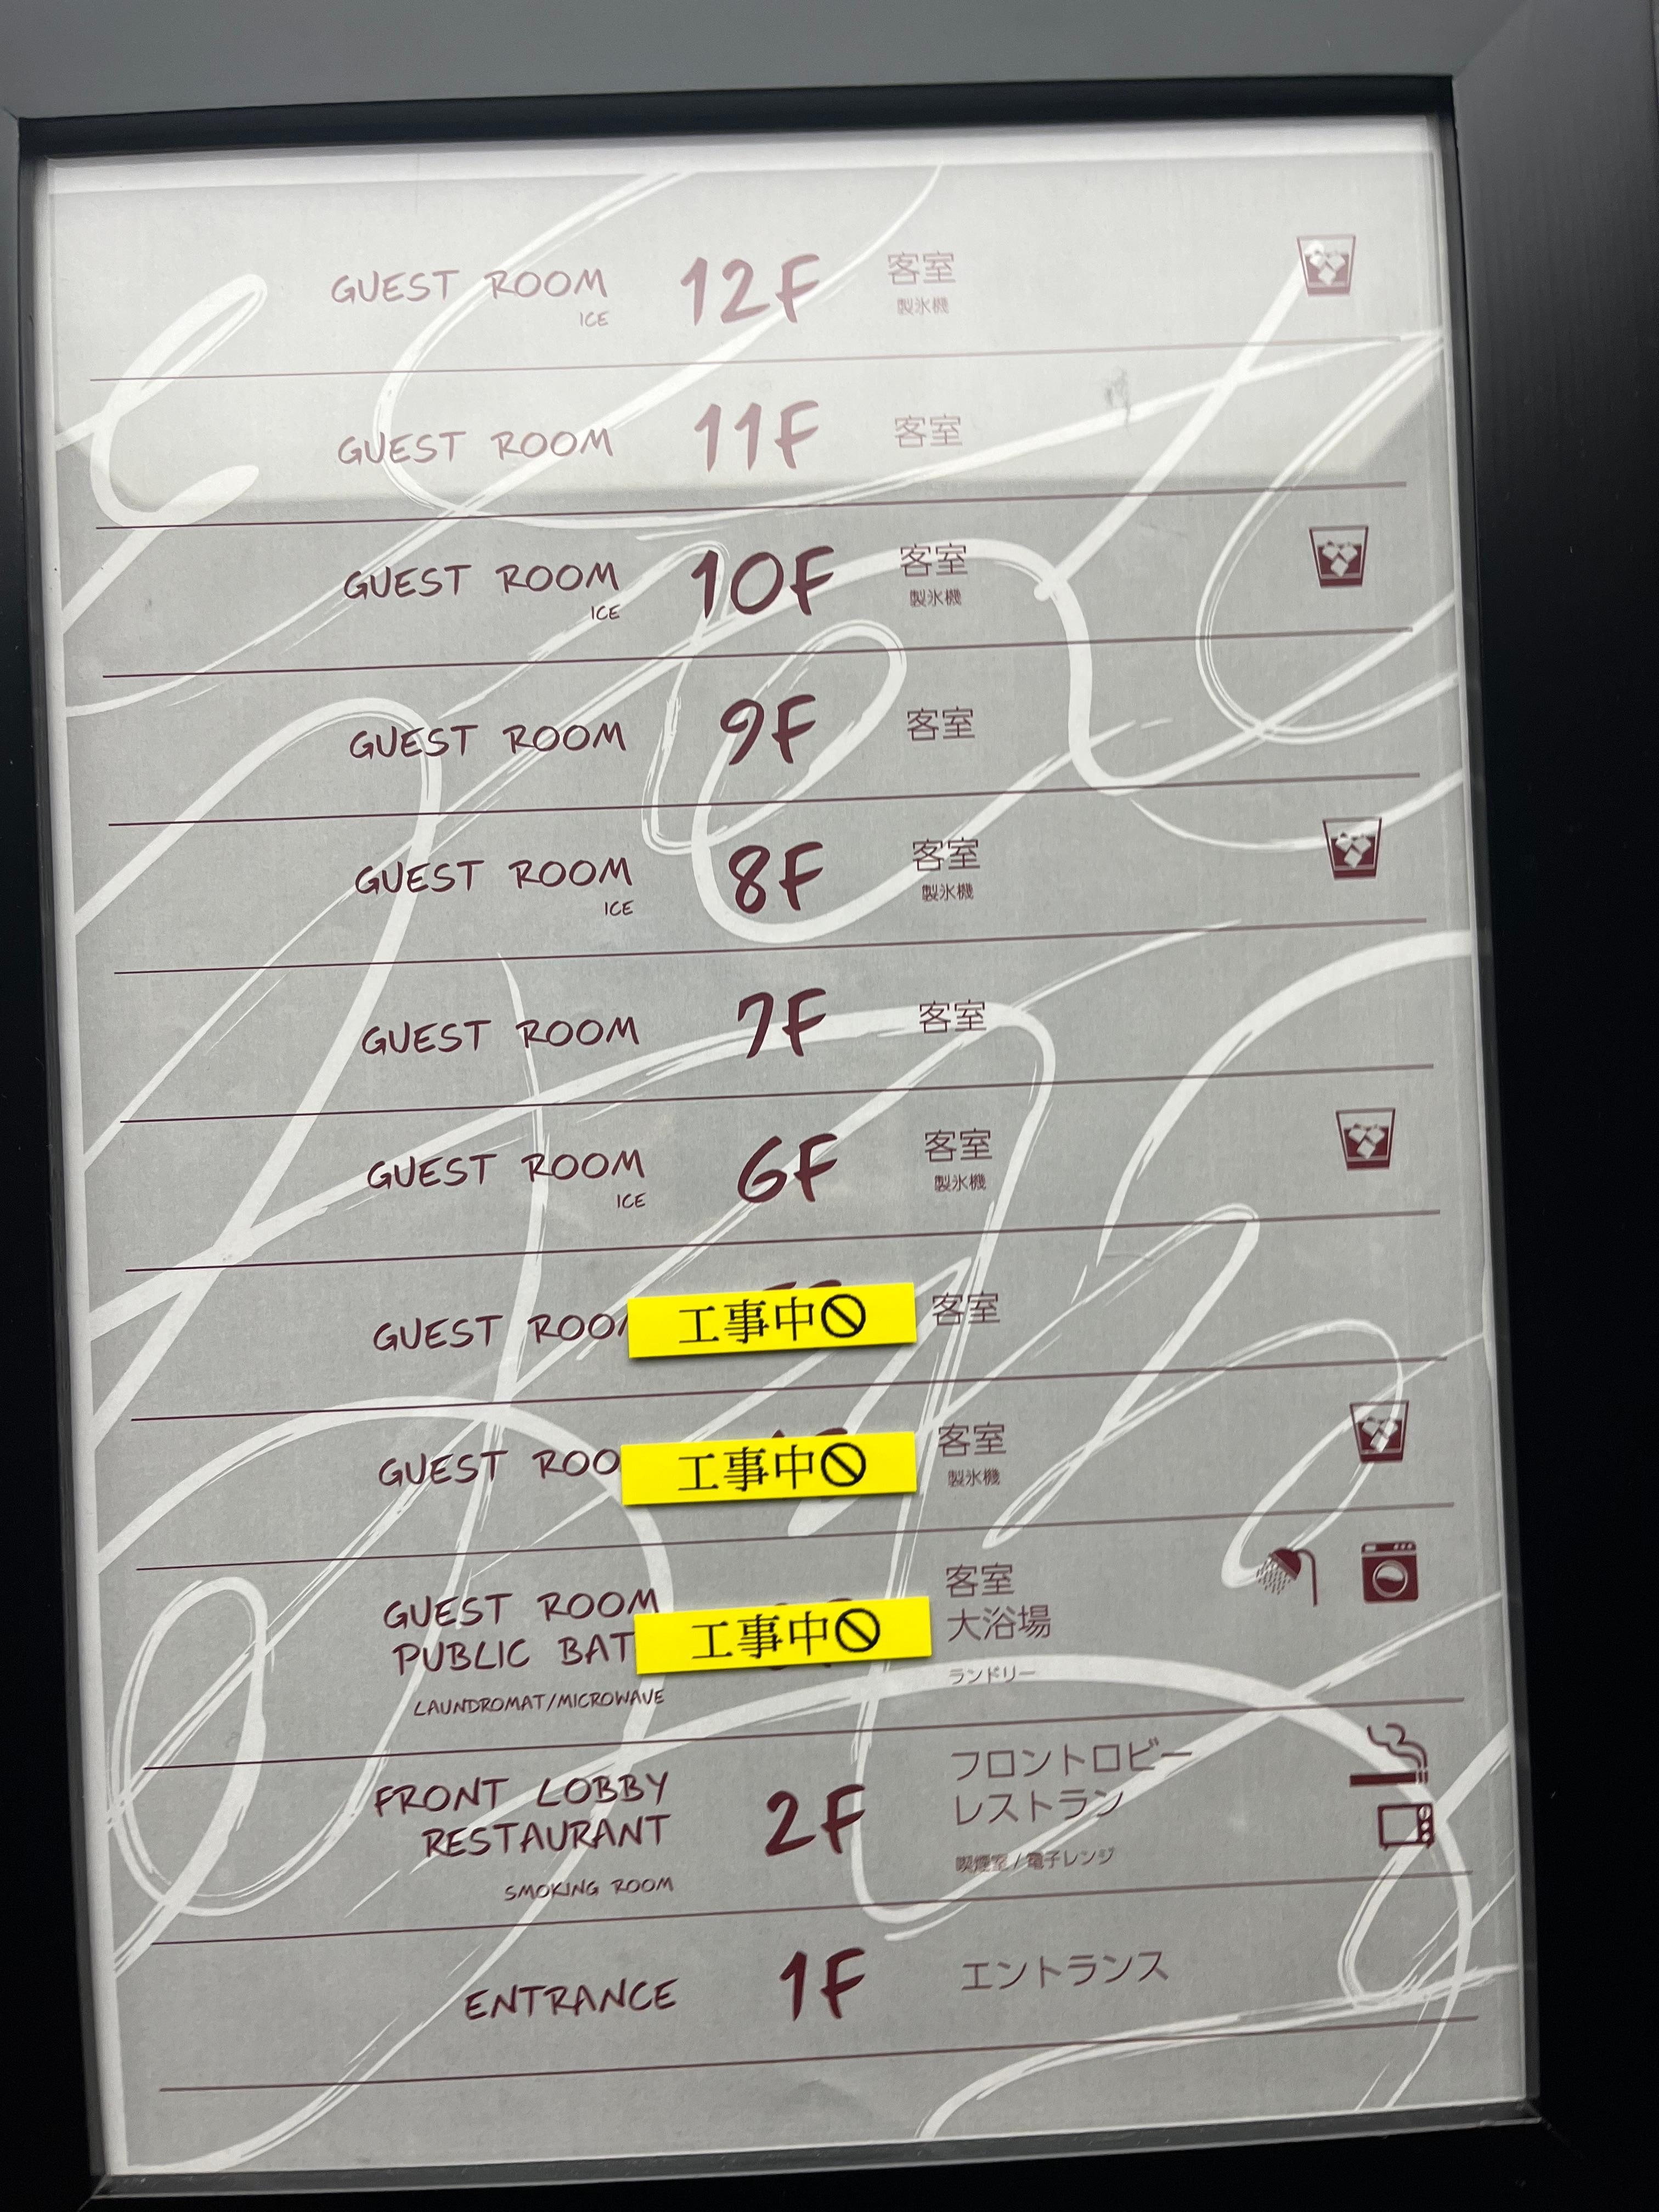 GUEST ROOM 12F 客室
ICE 製氷機
GUEST ROOM 11F 客室
GUEST ROOM 10F 客室
ICE 製氷機
GUEST ROOM 9F 客室
GUEST ROOM 8F 客室
ICE 製氷機
GUEST ROOM 7F 客室
GUEST ROOM 6F 客室
ICE 製氷機
GUEST 工事中🚫 客室
GUEST 工事中🚫 客室
製氷機
GUEST ROOM 客室
PUBLIC 工事中🚫 大浴場
LAUNDROMAT/MICROWAVE ランドリー
FRONT LOBBY 2F フロントロビー
RESTAURANT レストラン
SMOKING ROOM 喫煙室/電子レンジ
ENTRANCE 1F エントランス